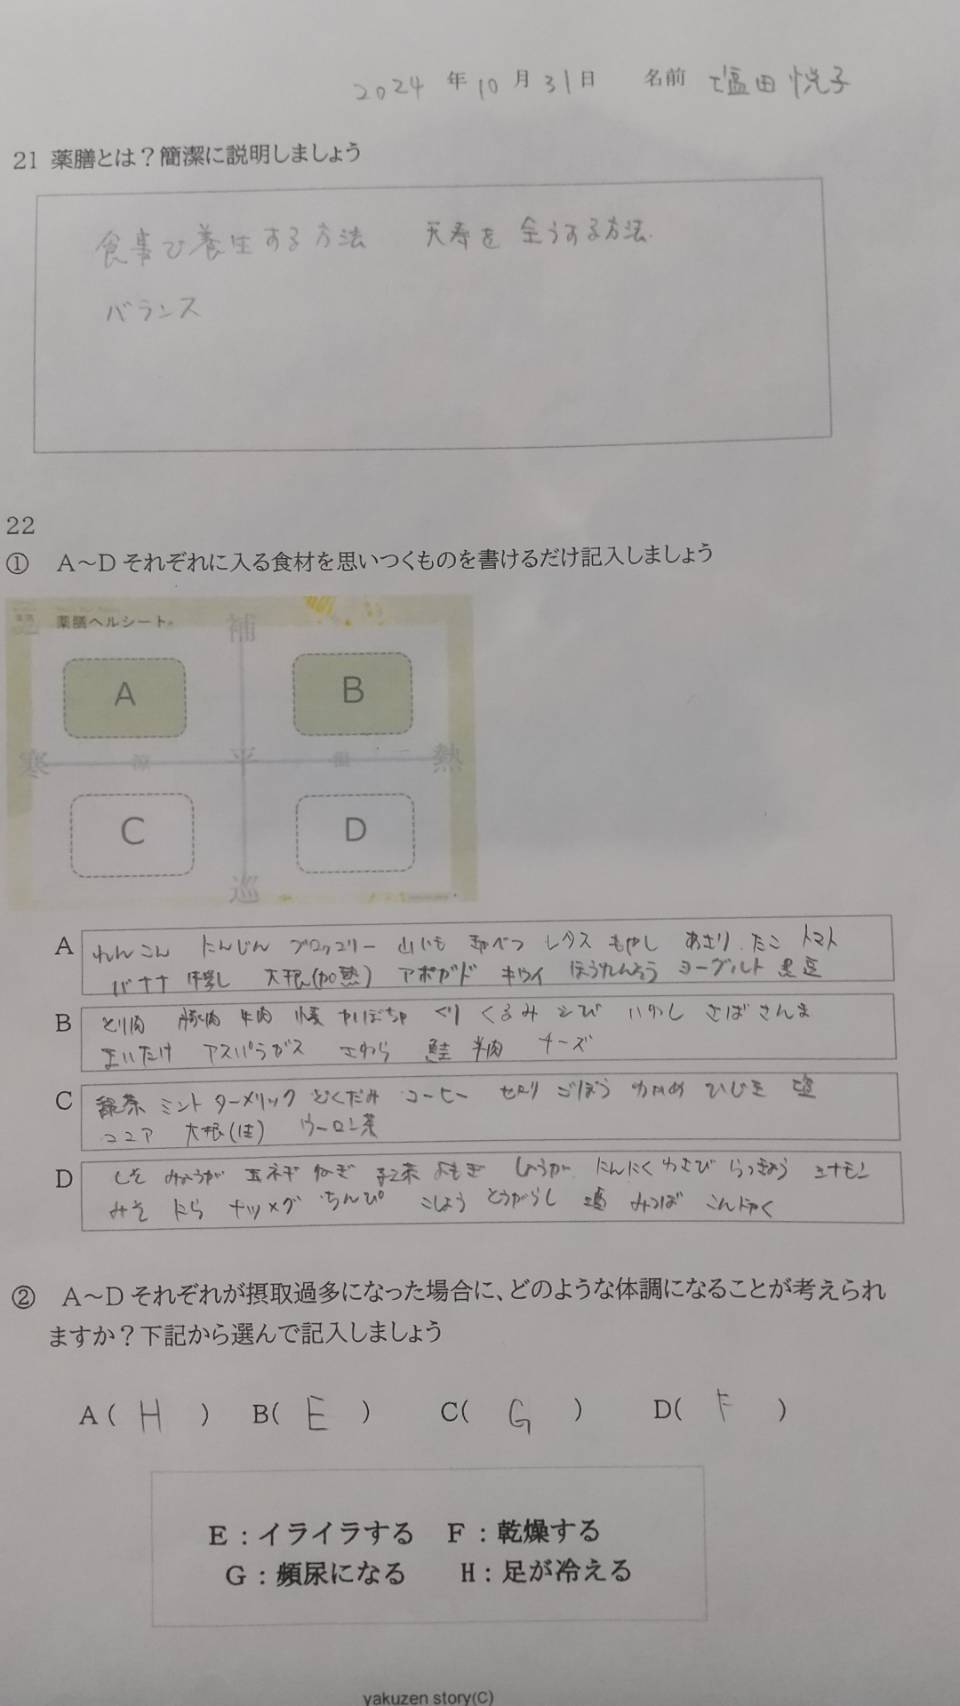 2024年10月31日 名前 塩田悦子
21 薬膳とは？簡潔に説明しましょう
食事で養生する方法 天寿を全うする方法.
バランス
22
① A～Dそれぞれに入る食材を思いつくものを書けるだけ記入しましょう
薬膳ヘルシート
補
A B
寒 涼 平 温 熱
C D
巡
A れんこん にんじん ブロッコリー 山いも キャベツ レタス もやし あさり たこ トマト
バナナ 大根(加熱) アボガド キウイ ほうれんそう ヨーグルト 黒豆
B とり肉 豚肉 牛肉 かぼちゃ くり くるみ えび いわし さば さんま
まいたけ アスパラガス さわら 鮭 羊肉 チーズ
C 緑茶 ミント ターメリック どくだみ コーヒー セロリ ごぼう わかめ ひじき 塩
ココア 大根(生) ウーロン茶
D しそ みょうが 玉ネギ ねぎ 紅茶 よもぎ しょうが にんにく わさび らっきょう シナモン
みそ にら ナツメグ ちんぴ こしょう とうがらし 酒 みつば こんにゃく
② A～Dそれぞれが摂取過多になった場合に、どのような体調になることが考えられ
ますか？下記から選んで記入しましょう
A( H ) B( E ) C( G ) D( F )
E：イライラする F：乾燥する
G：頻尿になる H：足が冷える
yakuzen story(C)